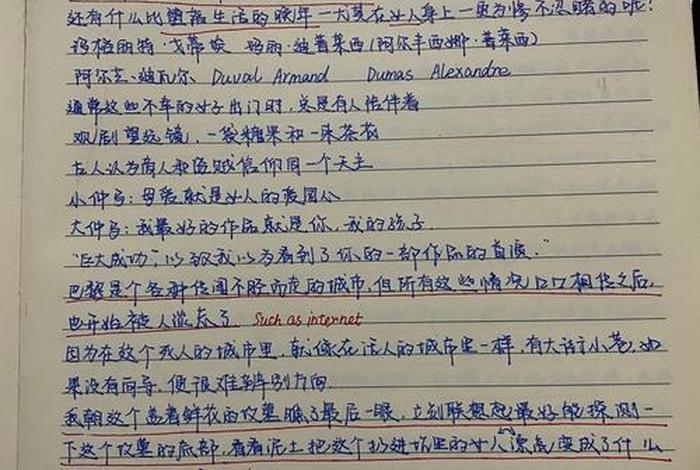 还有什么比堕落生活的晚年—尤其在女人身上—更为惨不忍睹的呢?
玛格丽特·戈蒂埃 玛丽·迪普莱西(阿尔丰西娜·普莱西)
阿尔芒·迪瓦尔、Duval Armand Dumas Alexandre
通常这些不幸的女子出门时,总是有人陪伴着
观剧望远镜、一袋糖果和一束茶花
古人认为商人和盗贼信仰同一个天主
小仲马:母爱就是女人的爱国心
大仲马:我最好的作品就是你,我的孩子.
“巨大成功;以致我以为看到了你的一部作品的首演.”
巴黎是个各种传闻不胫而走的城市,但所有这些情况口口相传之后,
也开始被人淡忘了. Such as internet
因为在这个死人的城市里,就像在活人的城市里一样,有大街小巷,如
果没有向导,便很难辨别方向.
我朝这个盖着鲜花的坟墓瞧了最后一眼,立刻联想起最好能探测一
下这个坟墓的底部,看看泥土把这个扔进坑里的女人漂亮变成了什么